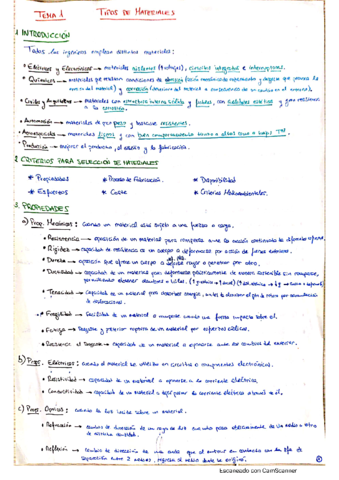 TEMA 1 TIPOS DE MATERIALES
1 INTRODUCCIÓN
Todos los ingenieros emplean distintos materiales:
• Eléctricos y Electrónicos → materiales aislantes circuitos integrados e interruptores.
• Químicos → materiales que
del material) y corrosión
• Civiles y Arquitectos → materiales con estructura interna sólida y fiables, con estética y gran resistencia
a la corrosión.
• Automoción → materiales de gran peso y bastante resistentes.
• Aeroespaciales → materiales ligeros y con buen comportamiento tanto a altas como a bajas Tª.
• Producción → mejorar el producto, el diseño y la fabricación.
2 CRITERIOS PARA SELECCIÓN DE MATERIALES
* Propiedades * Proceso de Fabricación. * Disponibilidad
* Esfuerzos * Coste * Criterios Medioambientales.
3 PROPIEDADES
a) Prop. Mecánicas: cuando un material está sujeto a una fuerza o carga.
• Resistencia → oposición de un material para romperse ante la acción
• Rigidez → capacidad de resistencia de un cuerpo a deformarse por acción de fuerzas exteriores.
• Dureza → oposición que ofrece un cuerpo a dejarse rayar o penetrar por otro.
• Ductilidad → capacidad de un material para deformarse plásticamente de manera sostenible sin romperse,
permitiendo obtener alambres o hilos.
• Tenacidad → capacidad de un material para absorber energía, antes de
de
• Fragilidad → facilidad de un material a romperse cuando una fuerza impacta sobre él.
• Fatiga → desgaste y posterior ruptura de un material por esfuerzos cíclicos.
• Resistencia al Desgaste → capacidad de un material a oponerse ante los cambios del exterior.
b) Prop. Eléctricas: cuando el material se utiliza en circuitos o componentes electrónicos.
• Resistividad → capacidad de un material a oponerse a la corriente eléctrica.
• Conductividad → capacidad de un material a dejar pasar la corriente eléctrica a través de él.
c) Prop. Ópticas: cuando la luz incide sobre un material.
• Refracción → cambio de dirección de un rayo de luz cuando pasa oblicuamente de un medio a otro
de distinta densidad.
• Reflexión → cambio de dirección de una onda que al entrar en contacto con la sfe de
separación entre 2 medios, regresa al medio donde se originó.
Escaneado con CamScanner